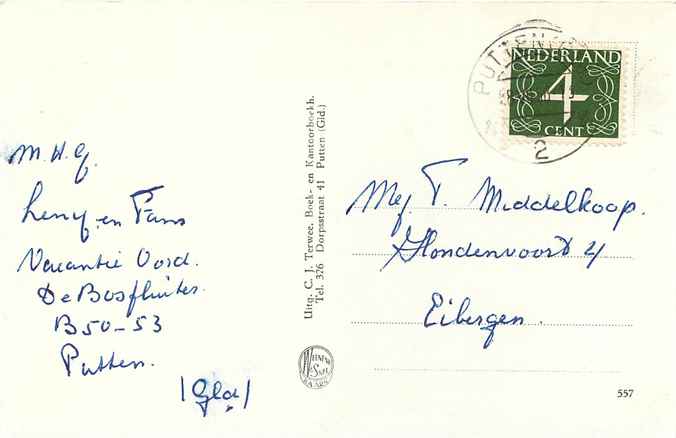 M.H.G.
Leny en Fans
Vacantie Oord.
De Bosfluiter
B50-53
Putten.
(Gld)
Uitg. C. J. Terwee, Boek- en Kantoorboekh.
Tel. 326 Dorpsstraat 41 Putten (Gld.)
PUTTEN
2
NEDERLAND
4
CENT
Mej. T. Middelkoop.
Hondenvoort 4
Eibergen.
557